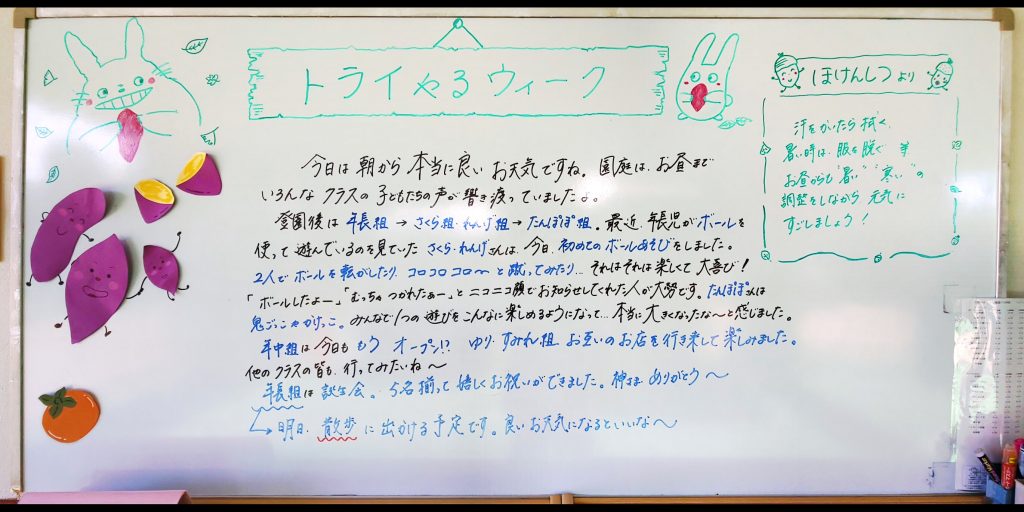 トライやるウィーク
今日は朝から本当に良いお天気ですね。園庭は、お昼まで
いろんなクラスの子どもたちの声が響き渡っていましたよ。
登園後は年長組→さくら組・れんげ組→たんぽぽ組。最近、年長児がボールを
使って遊んでいるのを見ていたさくら・れんげさんは、今日、初めてのボールあそびをしました。
2人でボールを転がしたり、コロコロコロ〜と蹴ってみたり… それはそれは楽しくて大喜び!
「ボールしたよー」「むっちゃつかれたぁー」とニコニコ顔でお知らせしてくれた人が大勢です。たんぽぽさんは
鬼ごっこやかけっこ。みんなで1つの遊びをこんなに楽しめるようになって…本当に大きくなったな〜と感じました。
年中組は今日ももうオープン!? ゆり・すみれ組、お互いのお店を行き来して楽しみました。
他のクラスの皆も、行ってみたいね〜
年長組は誕生会。5名揃って嬉しくお祝いができました。神さまありがとう〜
明日、散歩に出かける予定です。良いお天気になるといいな〜
ほけんしつより
汗をかいたら拭く、
暑い時は、服を脱ぐ 等
お昼からも"暑い""寒い"の
調整をしながら元気に
すごしましょう!